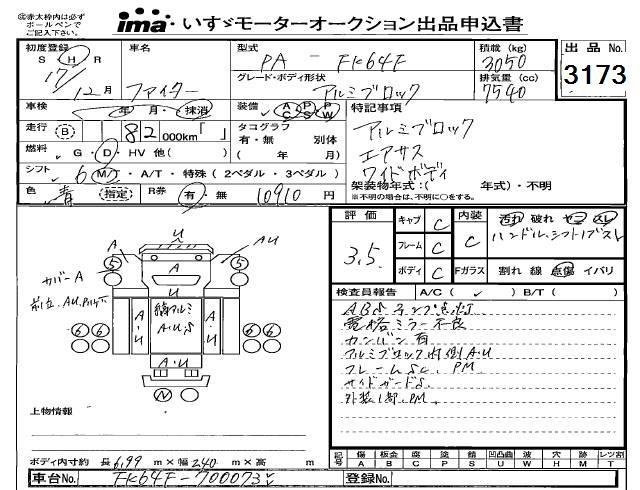 ㊟赤太枠内は必ず
ボールペンで
ご記入下さい。
ima いすゞモーターオークション出品申込書
初度登録 車名 型式 積載 (kg) 出品 No.
S H R PA - FK64F 3050
17/12月 ファイター グレード・ボディ形状 排気量 (cc) 3173
アルミブロック 7540
車検 年 月・抹消 装備 AC PS PW 特記事項
走行 B 82000km「 」 タコグラフ アルミブロック
有・無 別体 エアサス
燃料 G・D・HV 他( ) ( 年 月) ワイドボディ
シフト 6 MT・A/T・特殊 (2ペダル・3ペダル) 架装物年式:( 年式)・不明
色 青 (指定) R券 有・無 10910円 ※不明の場合は、不明に○をする。
評価 キャブ C 内装 汚れ 破れ ヤニ スレ
3.5 フレーム C C ハンドル、シフトノブスレ
ボディ C Fガラス 割れ 線 点傷 イバリ
検査員報告 A/C( ✓ ) B/T( )
ABSランプ点灯
電格ミラー不良
カンバン有
アルミブロック内側A.U
フレームSC、PM
サイドガードS
外装1部、PM
A U AU
5 A 5
カバーA U
前立、AU
6 6 縞アルミ 6 6
A.U.S
A・U A・U
U
N
上物情報
ボディ内寸約 長6.99m×幅240m×高 m
記号 傷 板金 腐 塗 錆 凹凸曲 波 穴 跡 レツ割
A B C P S U W H M T
車台No. FK64F-700073 登録No.